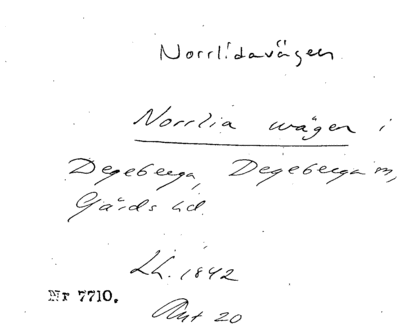 Norrlidavägen
Norrlia wägen i
Degeberga, Degeberga sn,
Gärds hd.
LL. 1842
Nr 7710.
Akt 20